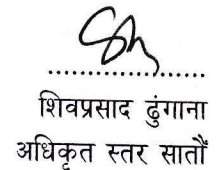 शिवप्रसाद ढुंगाना
अधिकृत स्तर सातौं